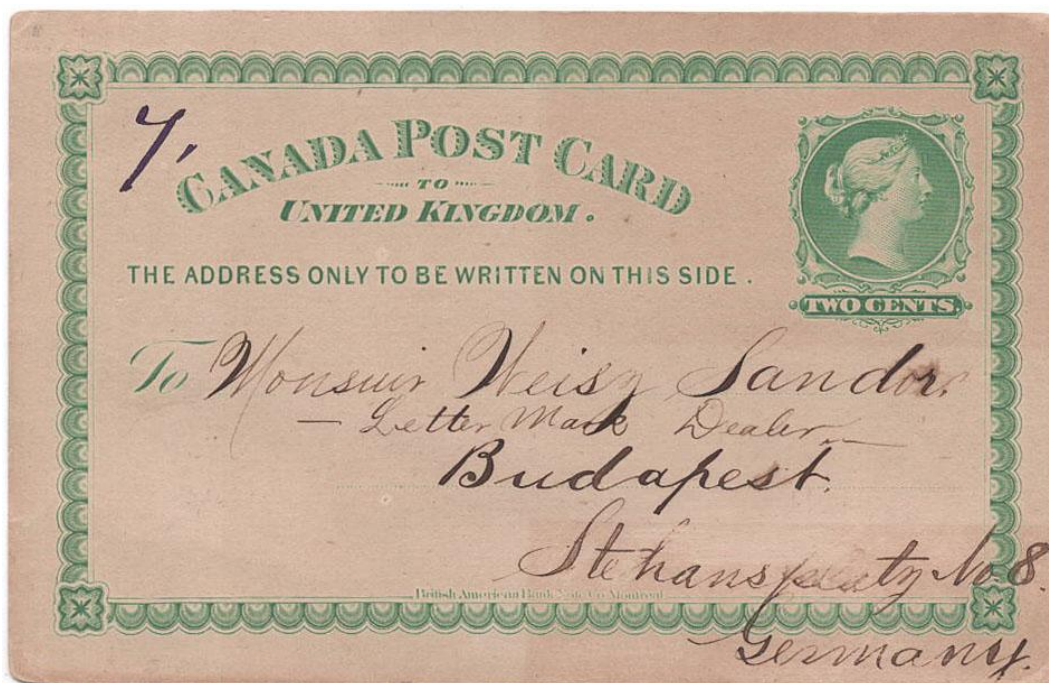 7.
CANADA POST CARD
TO
UNITED KINGDOM.
THE ADDRESS ONLY TO BE WRITTEN ON THIS SIDE.
TWO CENTS.
To Monsuir Weisz Sandor.
— Letter Mark Dealer —
Budapest.
Stehansplatz No 8.
British American Bank Note Co. Montreal.
Germany.